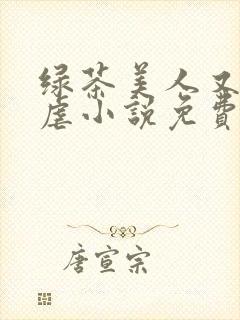 绿茶美人又
虐小說免費
唐宣宗